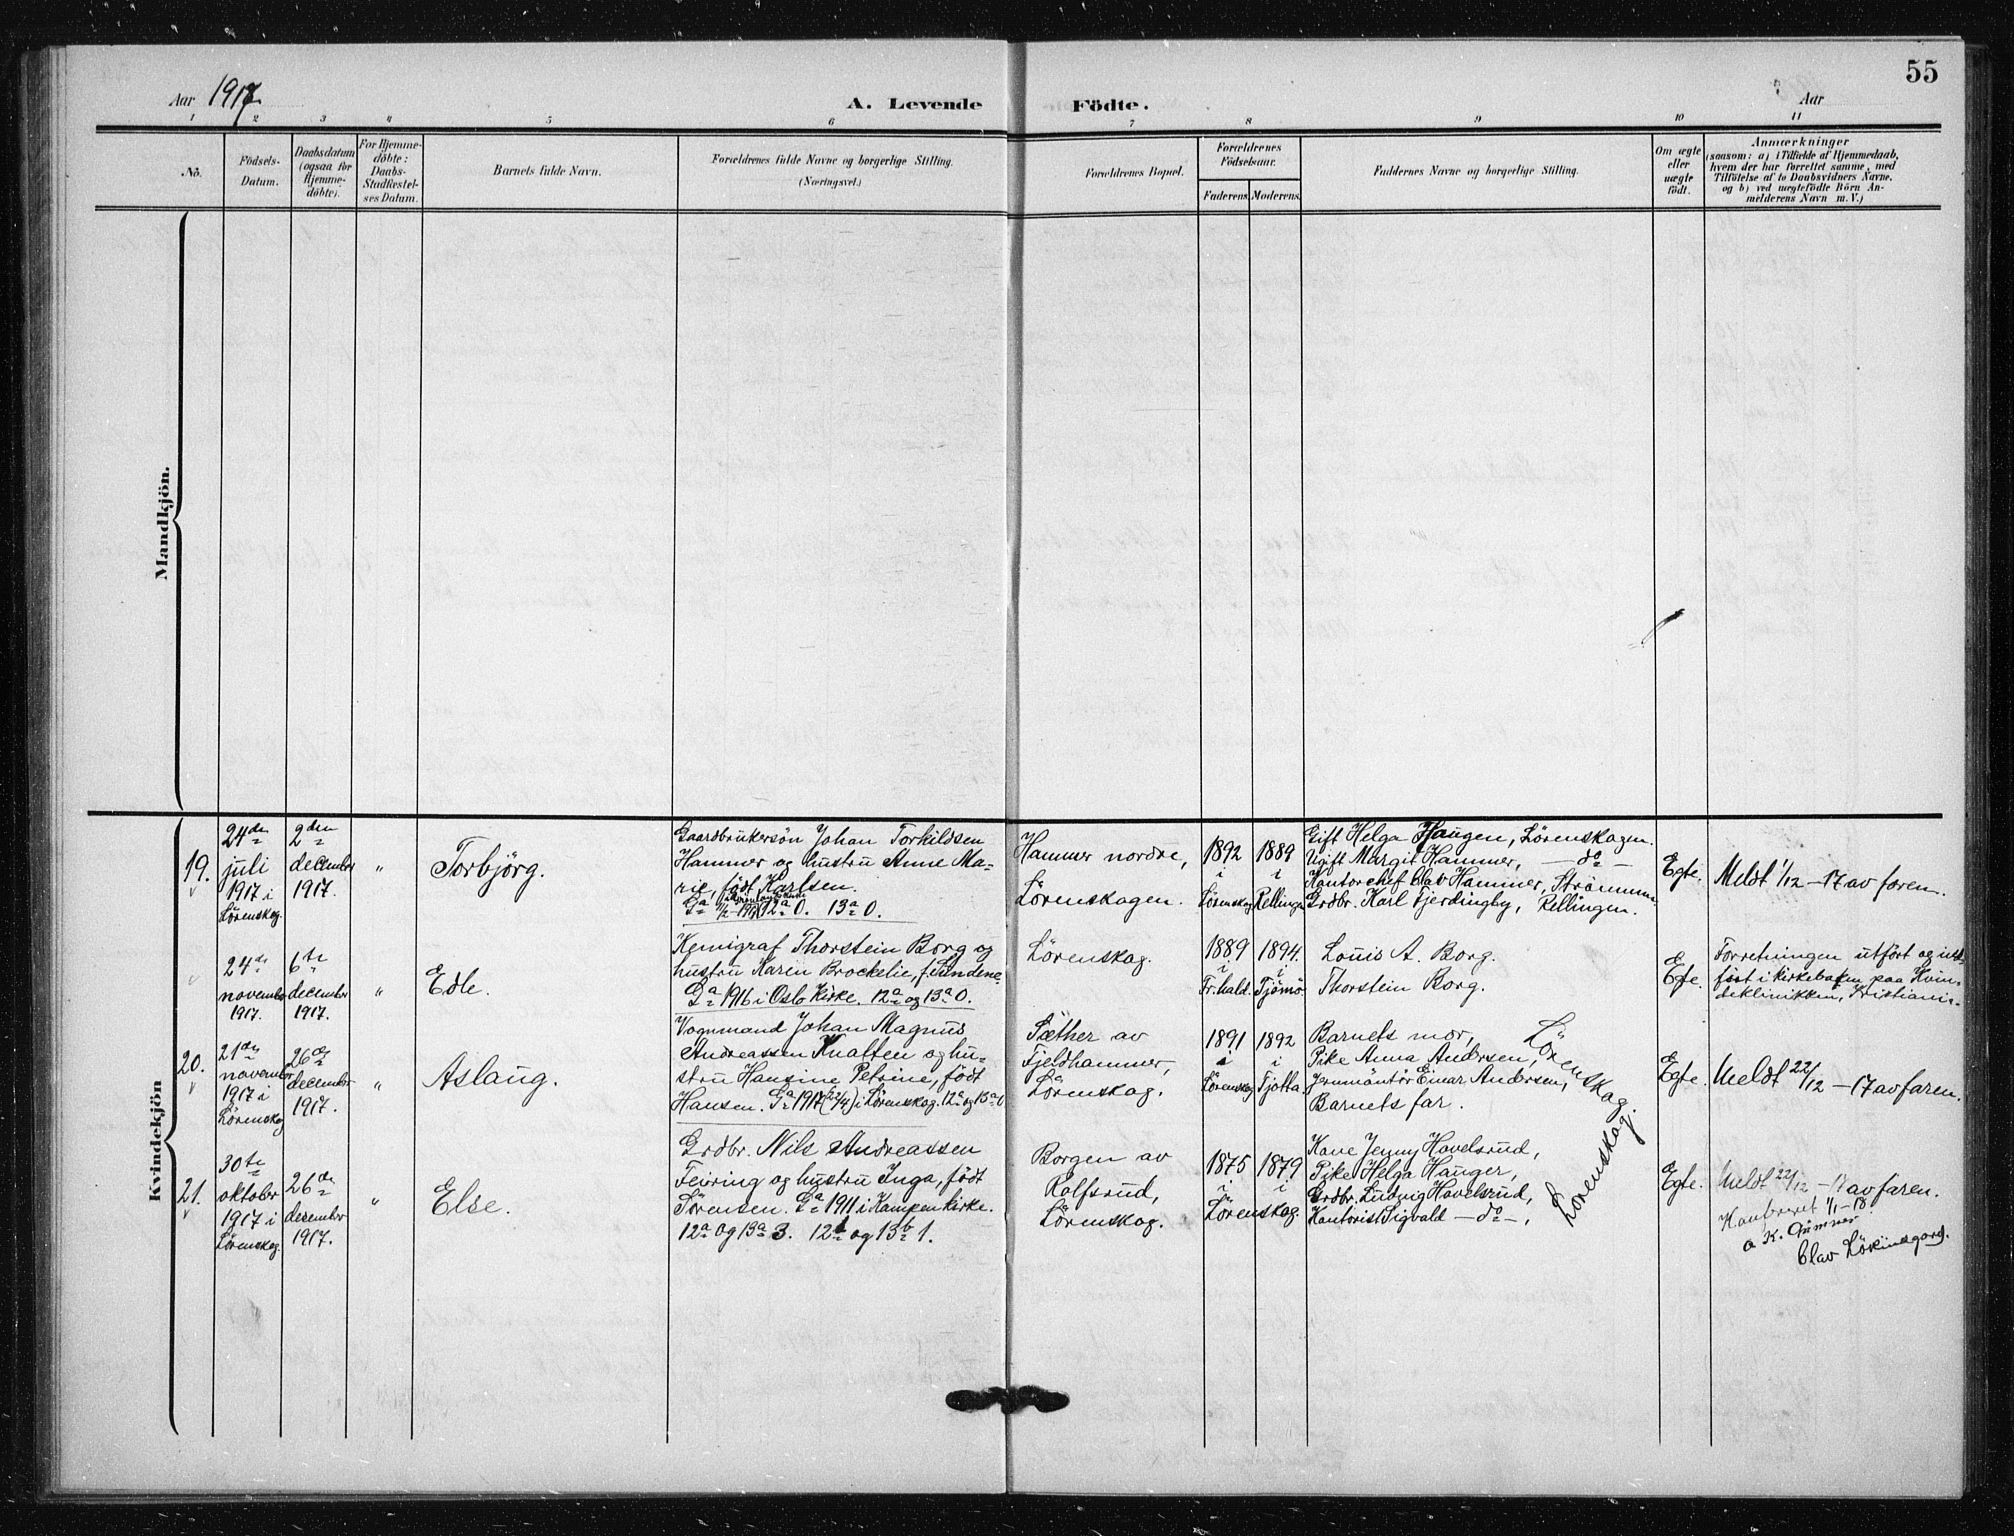 55
Aar 1917
A. Levende Födte.
Aar
1 2 3 4 5 6 7 8 9 10 11
No.
Födsels-
Datum.
Daabsdatum
(ogsaa for
Hjemme-
døbte).
For Hjemme-
døbte:
Daabs-
Stadfæstel-
ses Datum.
Barnets fulde Navn.
Forældrenes fulde Navne og borgerlige Stilling.
(Næringsvei.)
Forældrenes Bopæl.
Forældrenes
Födselsaar.
Faderens. Moderens.
Faddernes Navne og borgerlige Stilling.
Om ægte
eller
uægte
født.
Anmærkninger
(saasom: a) i Tilfælde af Hjemmedaab,
hvem der har forrettet samme, med
Tilföielse af to Daabsvidners Navne,
og b) ved uægtefödte Börn An-
melderens Navn m. V.)
Mandkjön.
Kvindekjön
19.
24de
juli
1917 i
Lørenskog.
2den
december
1917.
"
Torbjörg.
Gaardbrukersøn Johan Torkildsen
Hammer og hustru Anne Ma-
rie, født Karlsen.
12a 0. 13a 0.
Hammer nordre,
Lørenskogen.
1892
i
Lørenskog
1889
i
Rellingen
Gift Helga Haugen, Lørenskogen.
Ugift Margit Hammer, — do —
Kontorchef Olav Hammer, Strømmen.
Grdbr. Karl Fjerdingby, Rellingen.
Egte.
Meldt 1/12 - 17 av faren.
24de
november
1917.
6te
december
1917.
"
Edle.
Kemigraf Thorstein Borg og
hustru Karen Brockelie, f. Sundene.
Ga 1916 i Oslo Kirke. 12a og 13a 0.
Lørenskog.
1889
i
Fr.hald.
1894.
i
Tjömö.
Louis A. Borg.
Thorstein Borg.
Egte.
Forretningen utført og ind-
ført i kirkeboken paa Kvin-
deklinikken, Kristiania.
20.
21de
november
1917 i
Lörenskog
26de
december
1917.
"
Aslaug.
Vognmand Johan Magnus
Andreassen Knatten og hu-
stru Hansine Petrine, født
Hansen. Ga 1917 (22/4) i Lørenskog. 12a og 13a 0
Sæther av
Fjeldhammer,
Lørenskog.
1891
i
Lørenskog
1892
i
Tjotta.
Barnets mor,
Pike Anna Andersen,
Jernmontør Einar Andersen,
Barnets far.
Lörenskog.
Egte.
Meldt 22/12 - 17 av faren.
21.
30te
oktober
1917 i
Lørenskog.
26de
desember
1917.
"
Else.
Grdbr. Nils Andreassen
Feiring og hustru Inga, født
Sörensen. Ga 1911 i Kampen kirke.
12a og 13a 3. 12b og 13b 1.
Borgen av
Rolfsrud,
Lørenskog.
1875 1879.
i i
Lørenskog.
Kone Jenny Hovelsrud,
Pike Helga Hauger,
Grdbr. Ludvig Hovelsrud,
Kontorist Sigvald — do —,
Lørenskog.
Egte.
Meldt 22/12 - 17 av faren.
1/1 - 18.
Olav